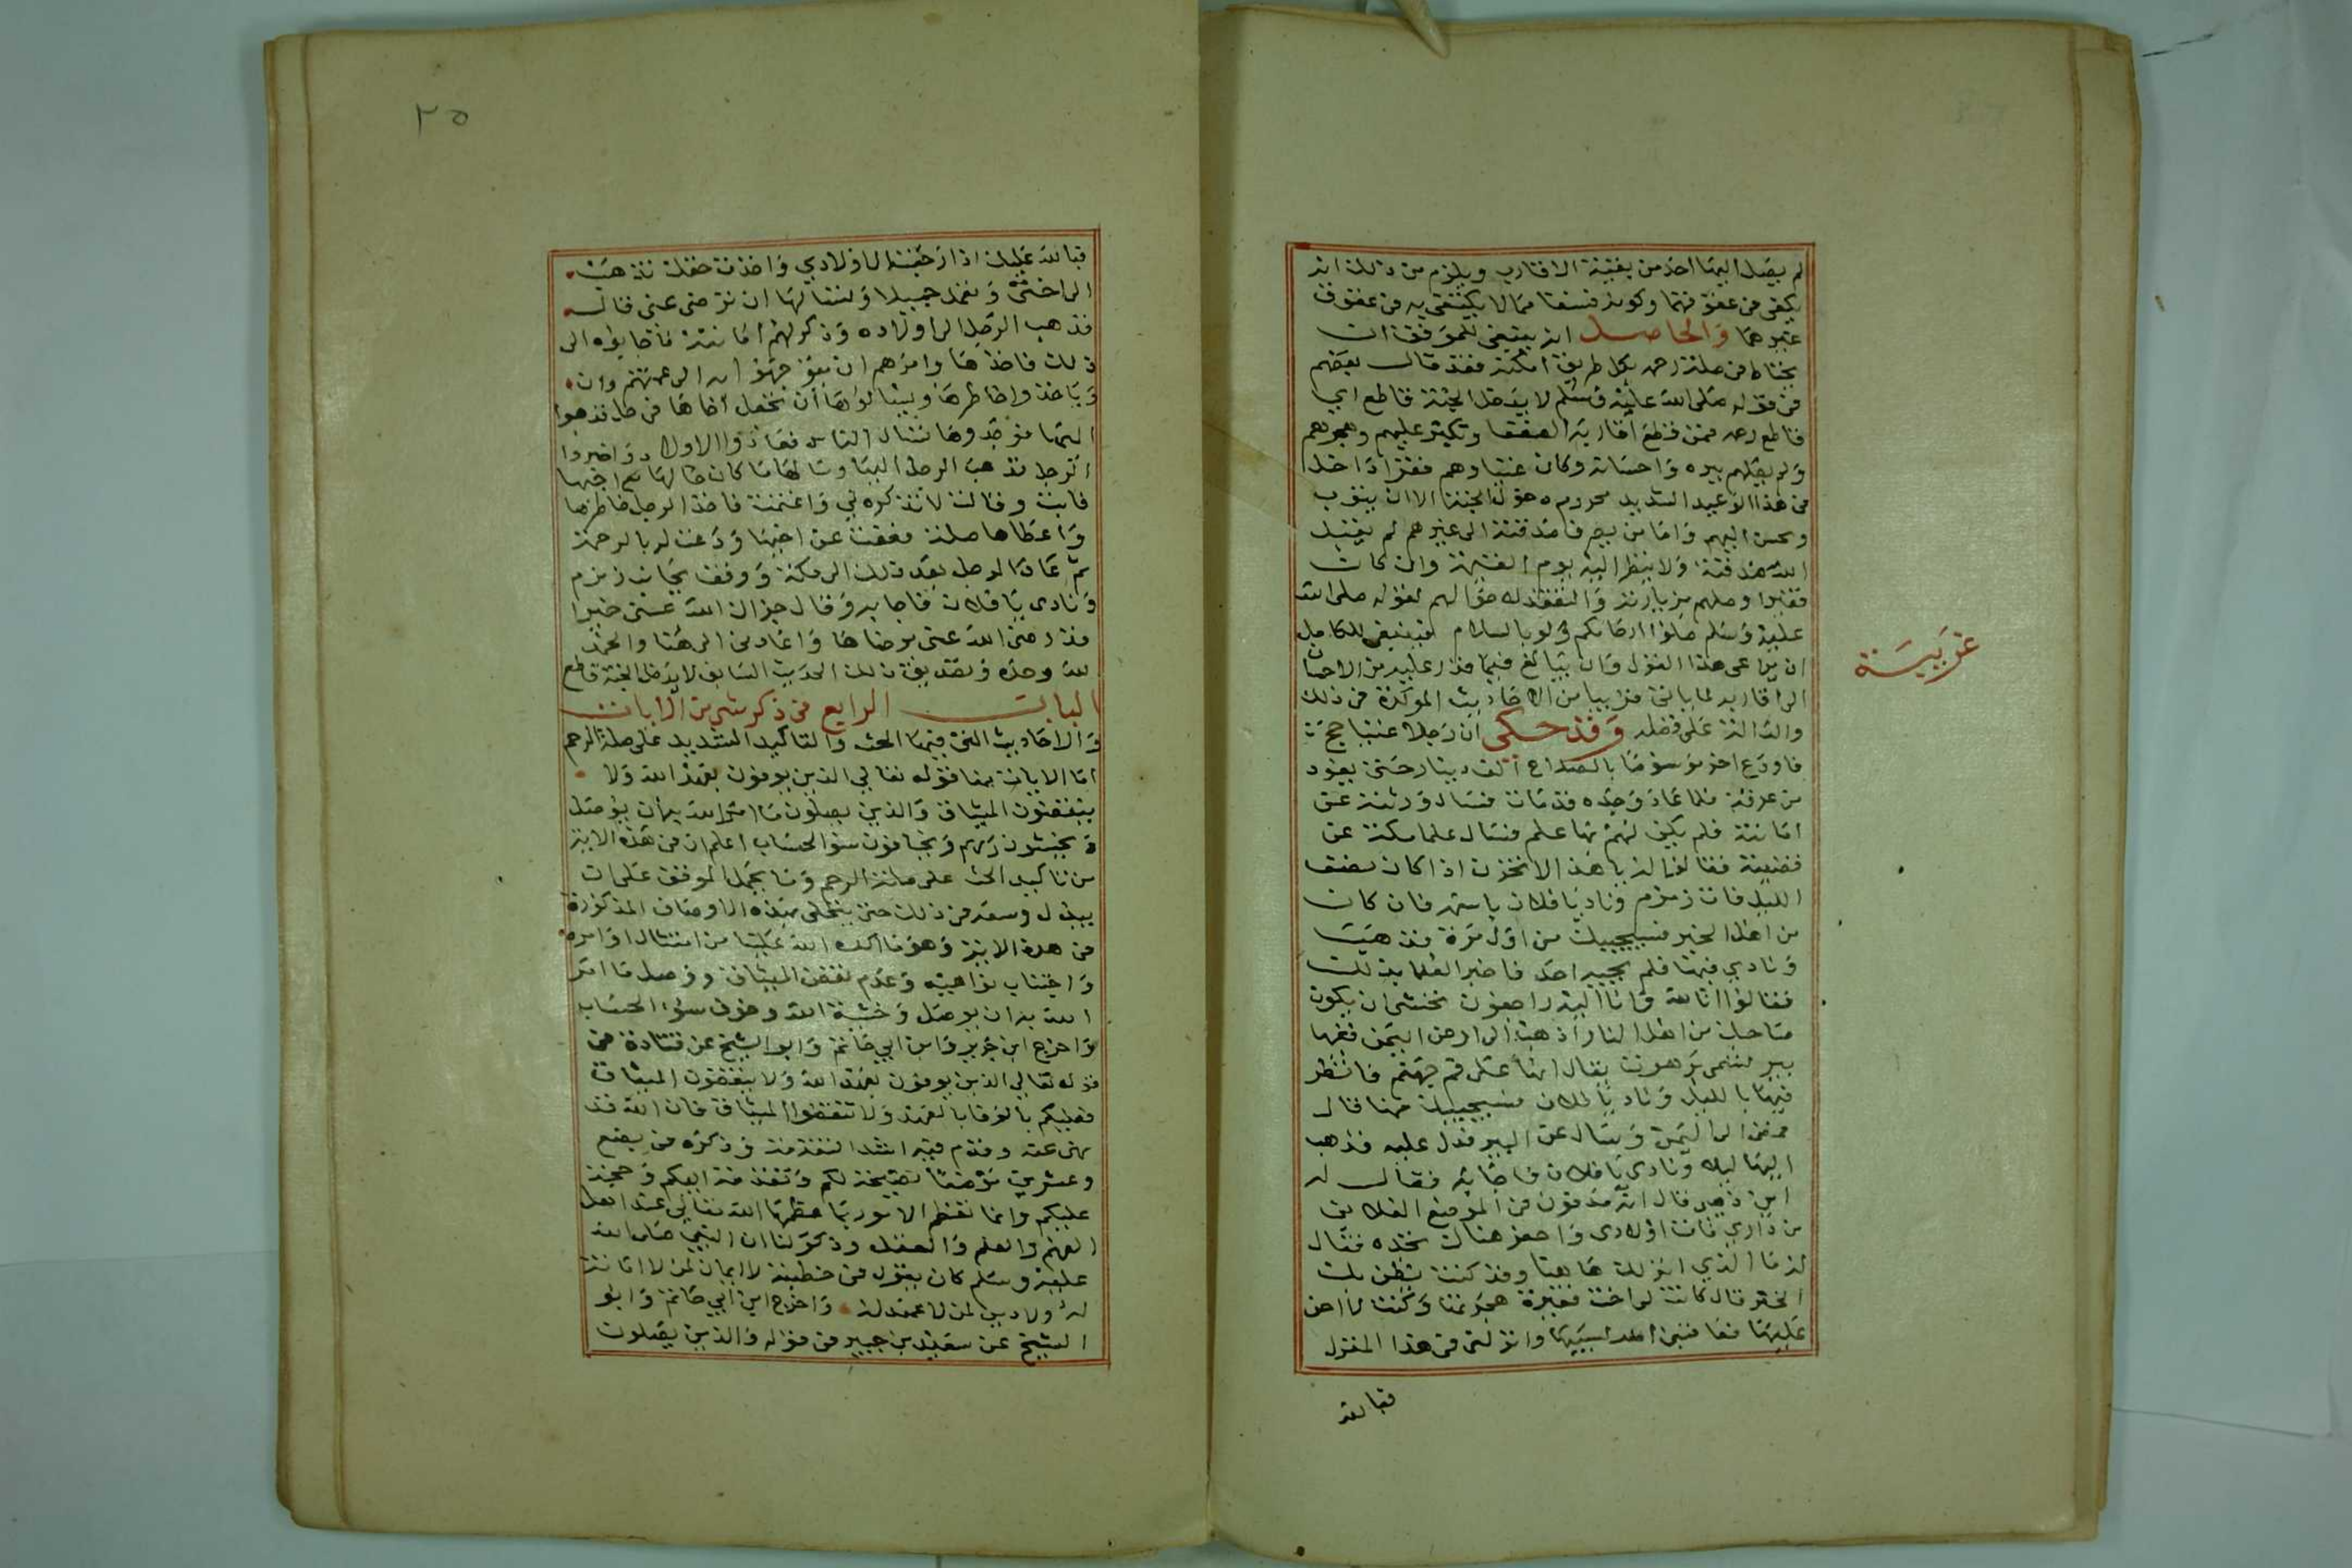 لم يصل اليهما احد من بقية الاقارب ويلزم من ذلك انه
يكفى في عقوقهما وكونه فسقا مما لا يكتفى به في عقوق
غيرهما والحاصل انه ينبغي للموفق ان
يحتاط في صلة رحمه بكل طريق امكنه فقد قال بعضهم
في قوله صلى الله عليه وسلم لا يدخل الجنة قاطع اي
قاطع رحم فمن قطع اقاربه الضعفا وتكبر عليهم وهجرهم
ولم يصلهم ببره واحسانه وكان غنيا وهم فقرا داخل
في هذا الوعيد الشديد محروم دخول الجنة الا ان يتوب
ويحسن اليهم واما من يصرف صدقته الى غيرهم لم يقبل
الله صدقته ولا ينظر اليه يوم القيمة وان كان
فقيرا وصلهم بزيارته والتفقد لاحوالهم لقوله صلى الله
عليه وسلم صلوا ارحامكم ولو بالسلام فينبغي للكامل
ان يراعى هذا القول وان يبالغ فيما قدر عليه من الاحسان
الى اقاربه لما ياتى قريبا من الاحاديث المؤكدة في ذلك
والدالة على فضله وقد حكي ان رجلا غنيا حج
فاودع اخر موسوما بالصلاح الف دينار حتى يعود
من عرفة فلما عاد وجده قد مات فسال ورثته عن
امانته فلم يكن لهم بها علم فسال علما مكة عن
قضيته فقالوا له يا هذا لا تحزن اذا كان نصف
الليل فات زمزم وناد يا فلان باسمه فان كان
من اهل الخير فسيجيبك من اول مرة فذهب
ونادى فيها فلم يجبه احد فاخبر العلما بذلك
فقالوا انا لله وانا اليه راجعون نخشى ان يكون
صاحبك من اهل النار اذهب الى ارض اليمن ففيها
بير تسمى برهوت يقال انها على فم جهنم فانظر
فيها بالليل وناد يا فلان فسيجيبك منها قال
فمضى الى اليمن وسال عن البير فدل عليه فذهب
اليها ليلا ونادى يا فلان فاجابه فقال له
اين ذهبى قال انه مدفون في الموضع الفلانى
من داري فات اولادى واحفر هناك تجده فقال
له ما الذي انزلك هاهنا وقد كنت نظن بك
الخير قال كانت لي اخت فقيرة هجرتها وكنت لا احن
عليها فعاقبنى الله بسببها وانزلنى في هذا المنزل
فبالله
غريبة
٢٥
فبالله عليك اذا رجعت الى اولادي واخذت حقك تذهب
الى اختى وتعمل جميلا وتسالها ان ترضى عنى قال
فذهب الرجل الى اولاده وذكر لهم امانته فاجابوه الى
ذلك فاخذها وامرهم ان يتوجهوا الى عمتهم وان
وياخذوا خاطرها ويسالوها ان تجعل اخاها في حل فذهبوا
اليها فوجدوها تسال الناس فعاد والاولاد واخبروا
الرجل فذهب الرجل اليها وسالها ما كان حالها مع اخيها
فابت وقالت لا تذكره لي واغتمت فاخذ الرجل خاطرها
واعطاها صلة فعفت عن اخيها ودعت له بالرحمة
ثم عاد الرجل بعد ذلك الى مكة ووقف بجانب زمزم
ونادى يا فلان فاجابه وقال جزاك الله عنى خيرا
قد رضى الله عنى برضاها واعادنى الى هنا والحمد
لله وحده وتصديق ذلك الحديث السابق لا يدخل الجنة قاطع
الباب الرابع في ذكر شي من الايات
والاحاديث التى فيها الحث والتاكيد الشديد على صلة الرحم
اما الايات فمنها قوله تعالى الذين يوفون بعهد الله ولا
ينقضون الميثاق والذين يصلون ما امر الله به ان يوصل
ويخشون ربهم ويخافون سؤ الحساب اعلم ان في هذه الاية
من تاكيد الحث على صلة الرحم وما يحمل الموفق على ان
يبذل وسعه في ذلك حتى يتحلى بهذه الاوصاف المذكورة
في هذه الاية وهو ما اكده الله علينا من امتثال اوامره
واجتناب نواهيه وعدم نقض الميثاق ووصل ما امر
الله به ان يوصل وخشية الله وخوف سؤ الحساب
واخرج ابن جرير وابن ابي حاتم وابو الشيخ عن قتادة في
قوله تعالى الذين يوفون بعهد الله ولا ينقضون الميثاق
فعليكم بالوفا بالعهد ولا تنقضوا الميثاق فان الله قد
نهى عنه وقدم فيه اشد التقدمة وذكره في بضع
وعشرين موضعا نصيحة لكم وتقدمة اليكم وحجة
عليكم وانما تعظم الامور بما عظمها الله تعالى عند اهل
الفهم والعلم والعقل وذكر لنا ان النبي صلى الله
عليه وسلم كان يقول في خطبته لا ايمان لمن لا امانة
له ولا دين لمن لا عهد له واخرج ابن ابي حاتم وابو
الشيخ عن سعيد بن جبير في قوله والذين يصلون